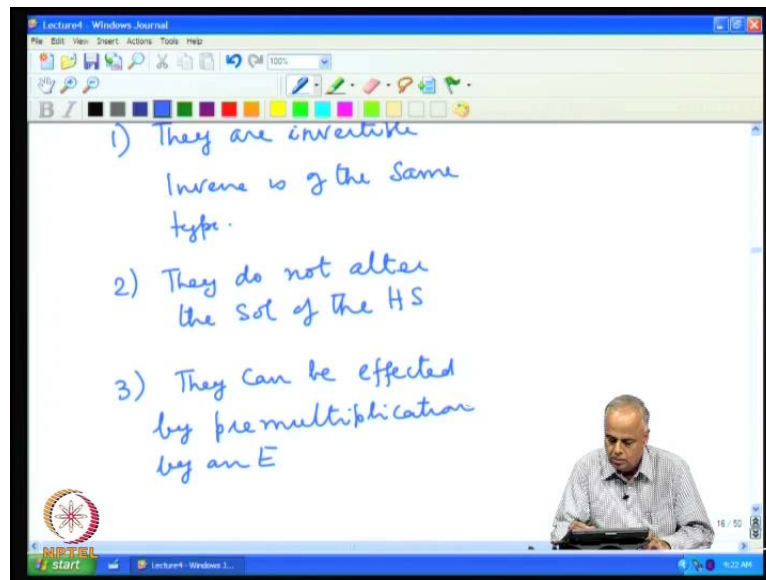 Lecture4 - Windows Journal
File Edit View Insert Actions Tools Help
100%
B I
1) They are invertible
Inverse is of the Same
type.
2) They do not alter
the Sol of the HS
3) They can be effected
by premultiplication
by an E
16 / 50
NPTEL
start
Lecture4 - Windows J...
9:22 AM